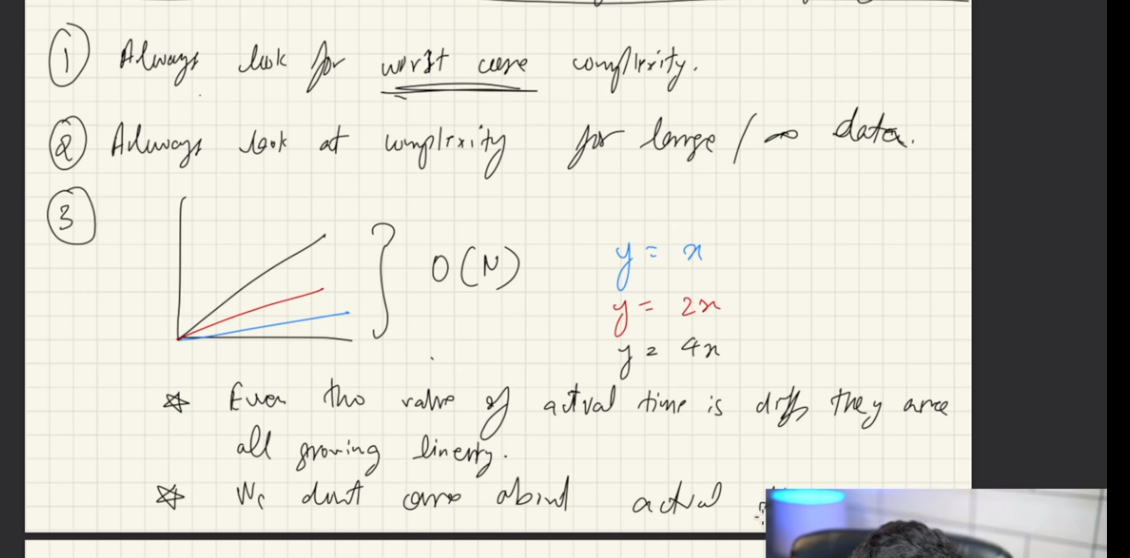 ① Always look for worst case complexity.
② Always look at complexity for large / ∞ data.
③
O(N)
y = x
y = 2x
y = 4x
☆ Even tho value of actual time is diff they are
all growing linerly.
☆ We dont care about actual